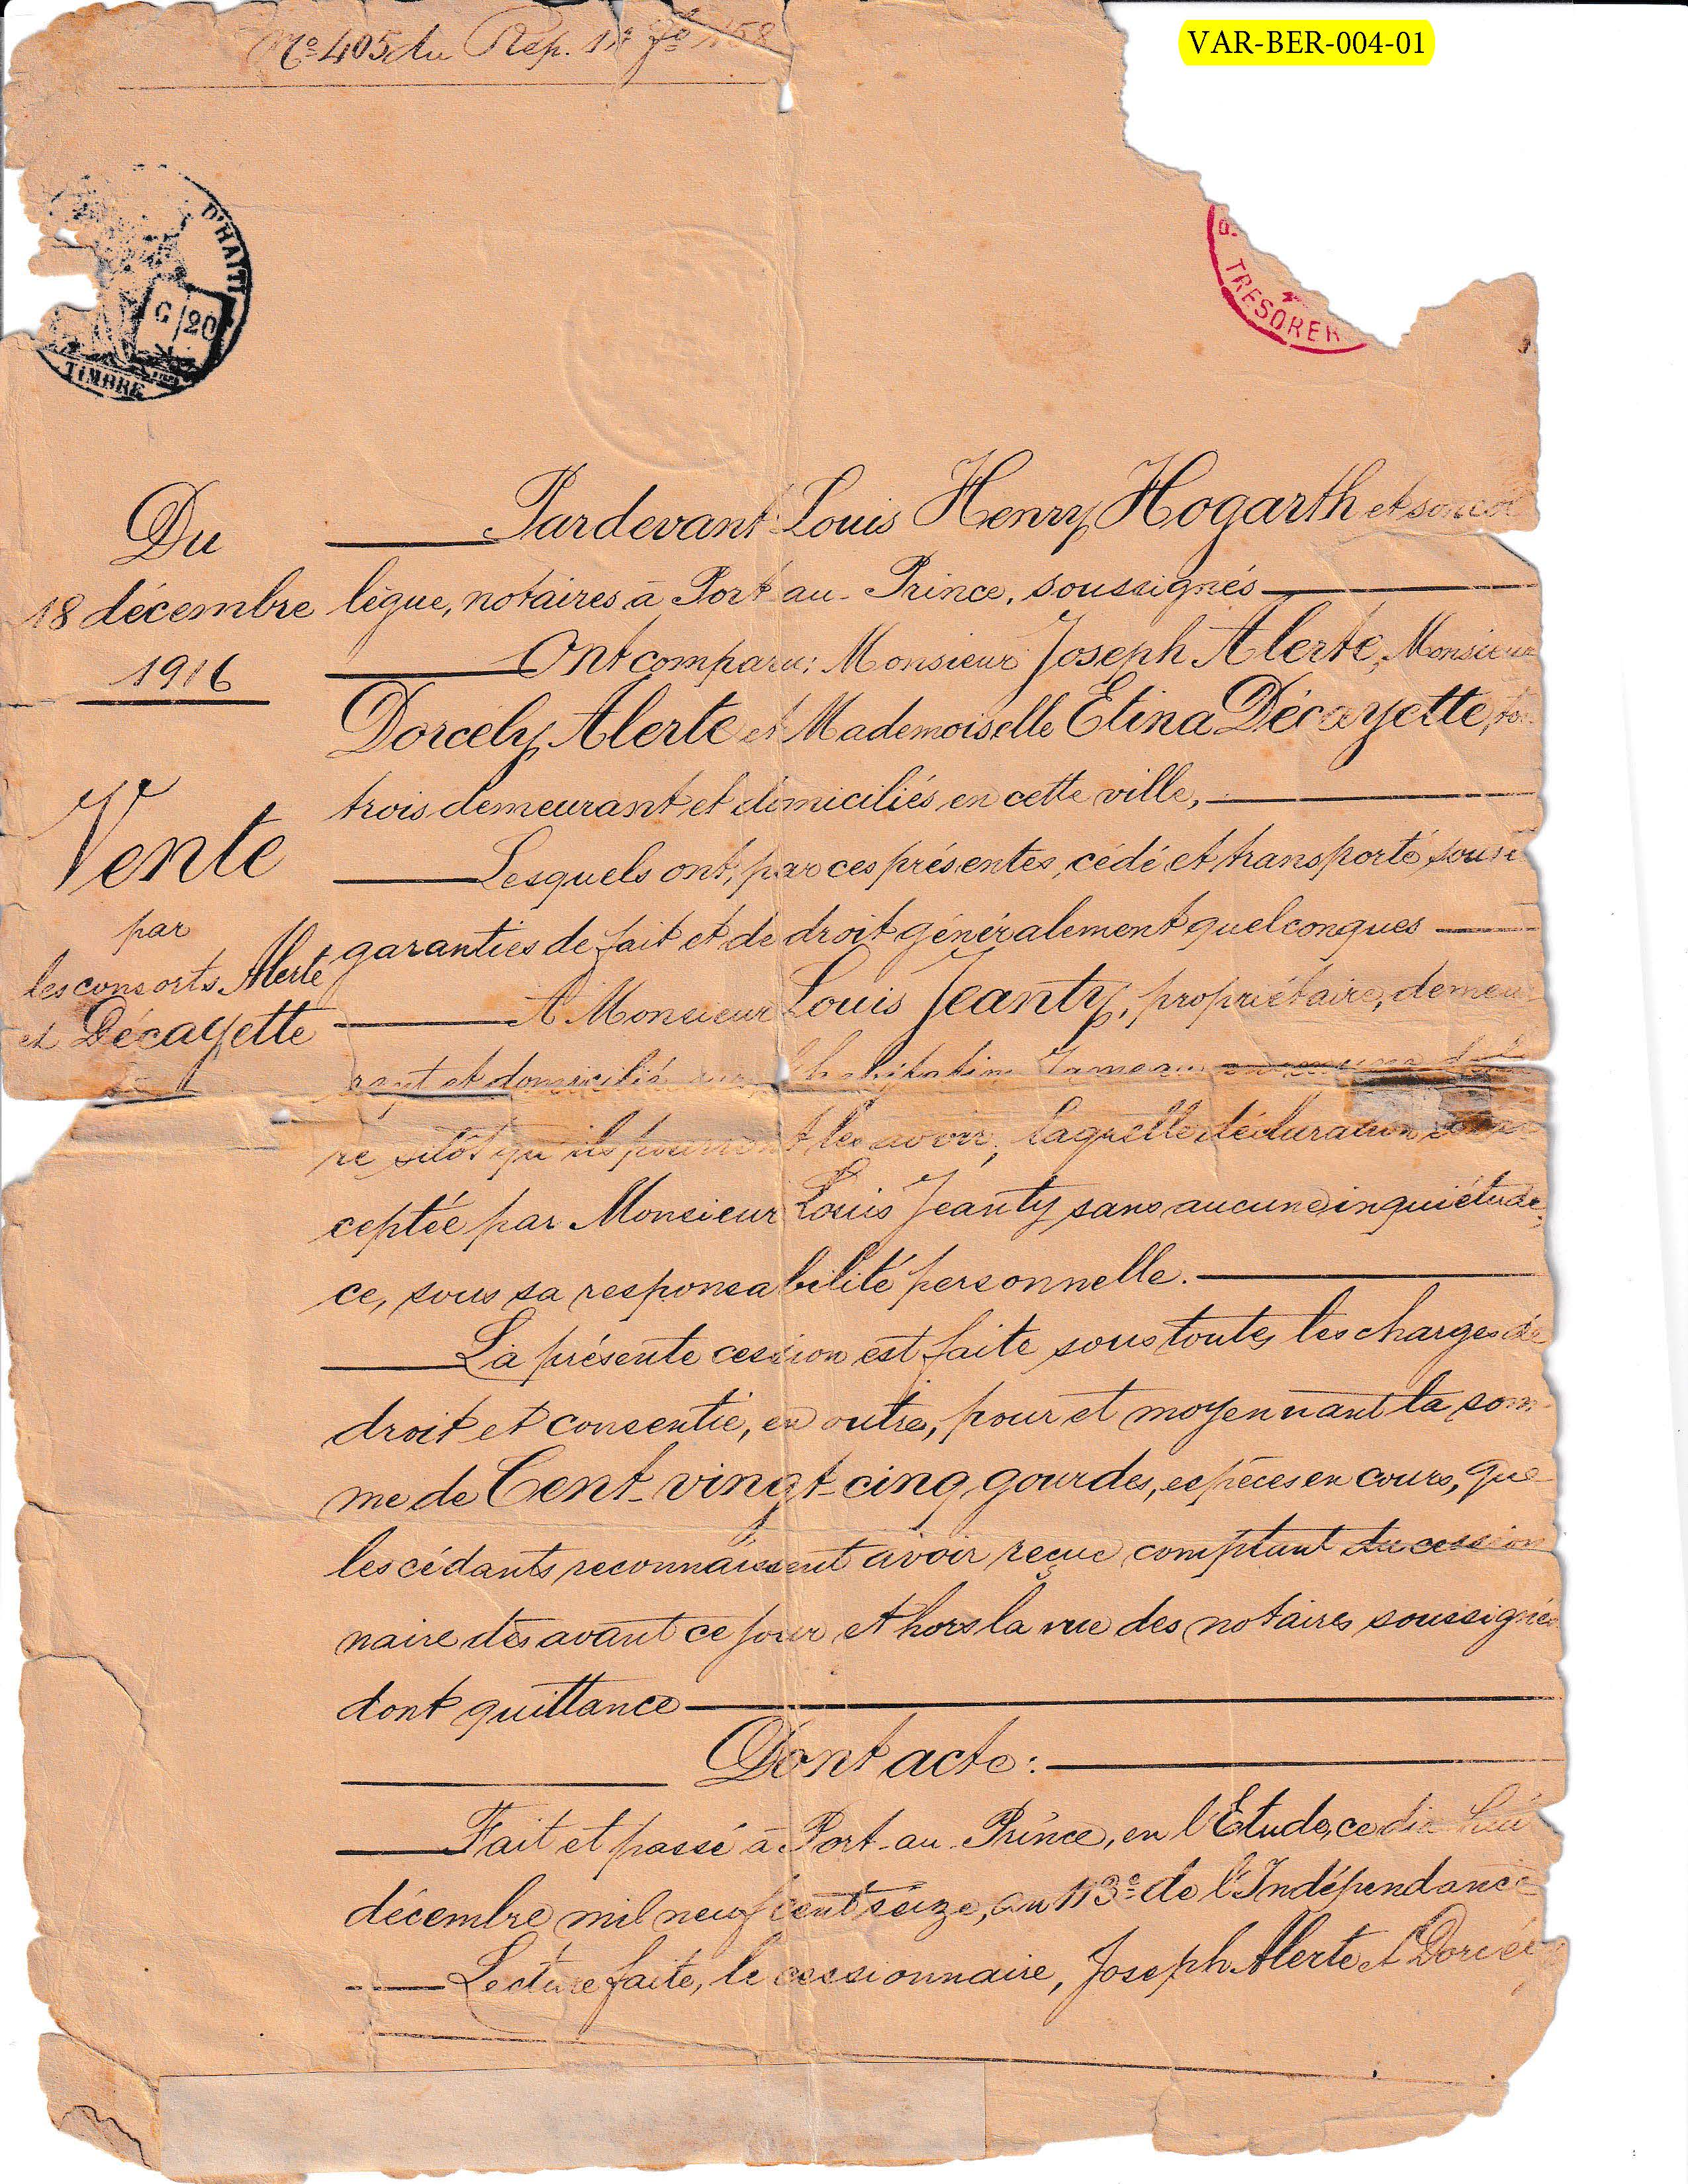 VAR-BER-004-01
Nº 405 du Rep. 158
D'HAITI
G 20
TIMBRE
TRESORER
Du
18 décembre
1916
Vente
par
les consorts Alerte
et Décayette
à
Pardevant Louis Henry Hogarth et son col
lègue, notaires à Port au-Prince, soussignés
Ont comparu: Monsieur Joseph Alerte, Monsieur
Dorcély Alerte et Mademoiselle Etina Décayette,
trois demeurant et domiciliés en cette ville,
Lesquels ont, par ces présentes, cédé et transporté sous
garanties de fait et de droit généralement quelconques
A Monsieur Louis Jeanty, propriétaire, demeu
rant et domicilié sur l'habitation
re sitôt qu'ils pourront les avoir, laquelle déclaration
ceptée par Monsieur Louis Jeanty sans aucune inquiétude,
ce, sous sa responsabilité personnelle.
La présente cession est faite sous toutes les charges de
droit et consentie, en outre, pour et moyennant la som
me de Cent-vingt-cinq gourdes, espèces en cours, que
les cédants reconnaissent avoir reçue comptant du cession
naire dès avant ce jour et hors la vue des notaires soussignés
dont quittance
Dont acte:
Fait et passé à Port-au-Prince, en l'Etude, ce dix huit
décembre mil neuf cent seize, an 113e de l'Indépendance
Lecture faite, le cessionnaire, Joseph Alerte et Dorcél